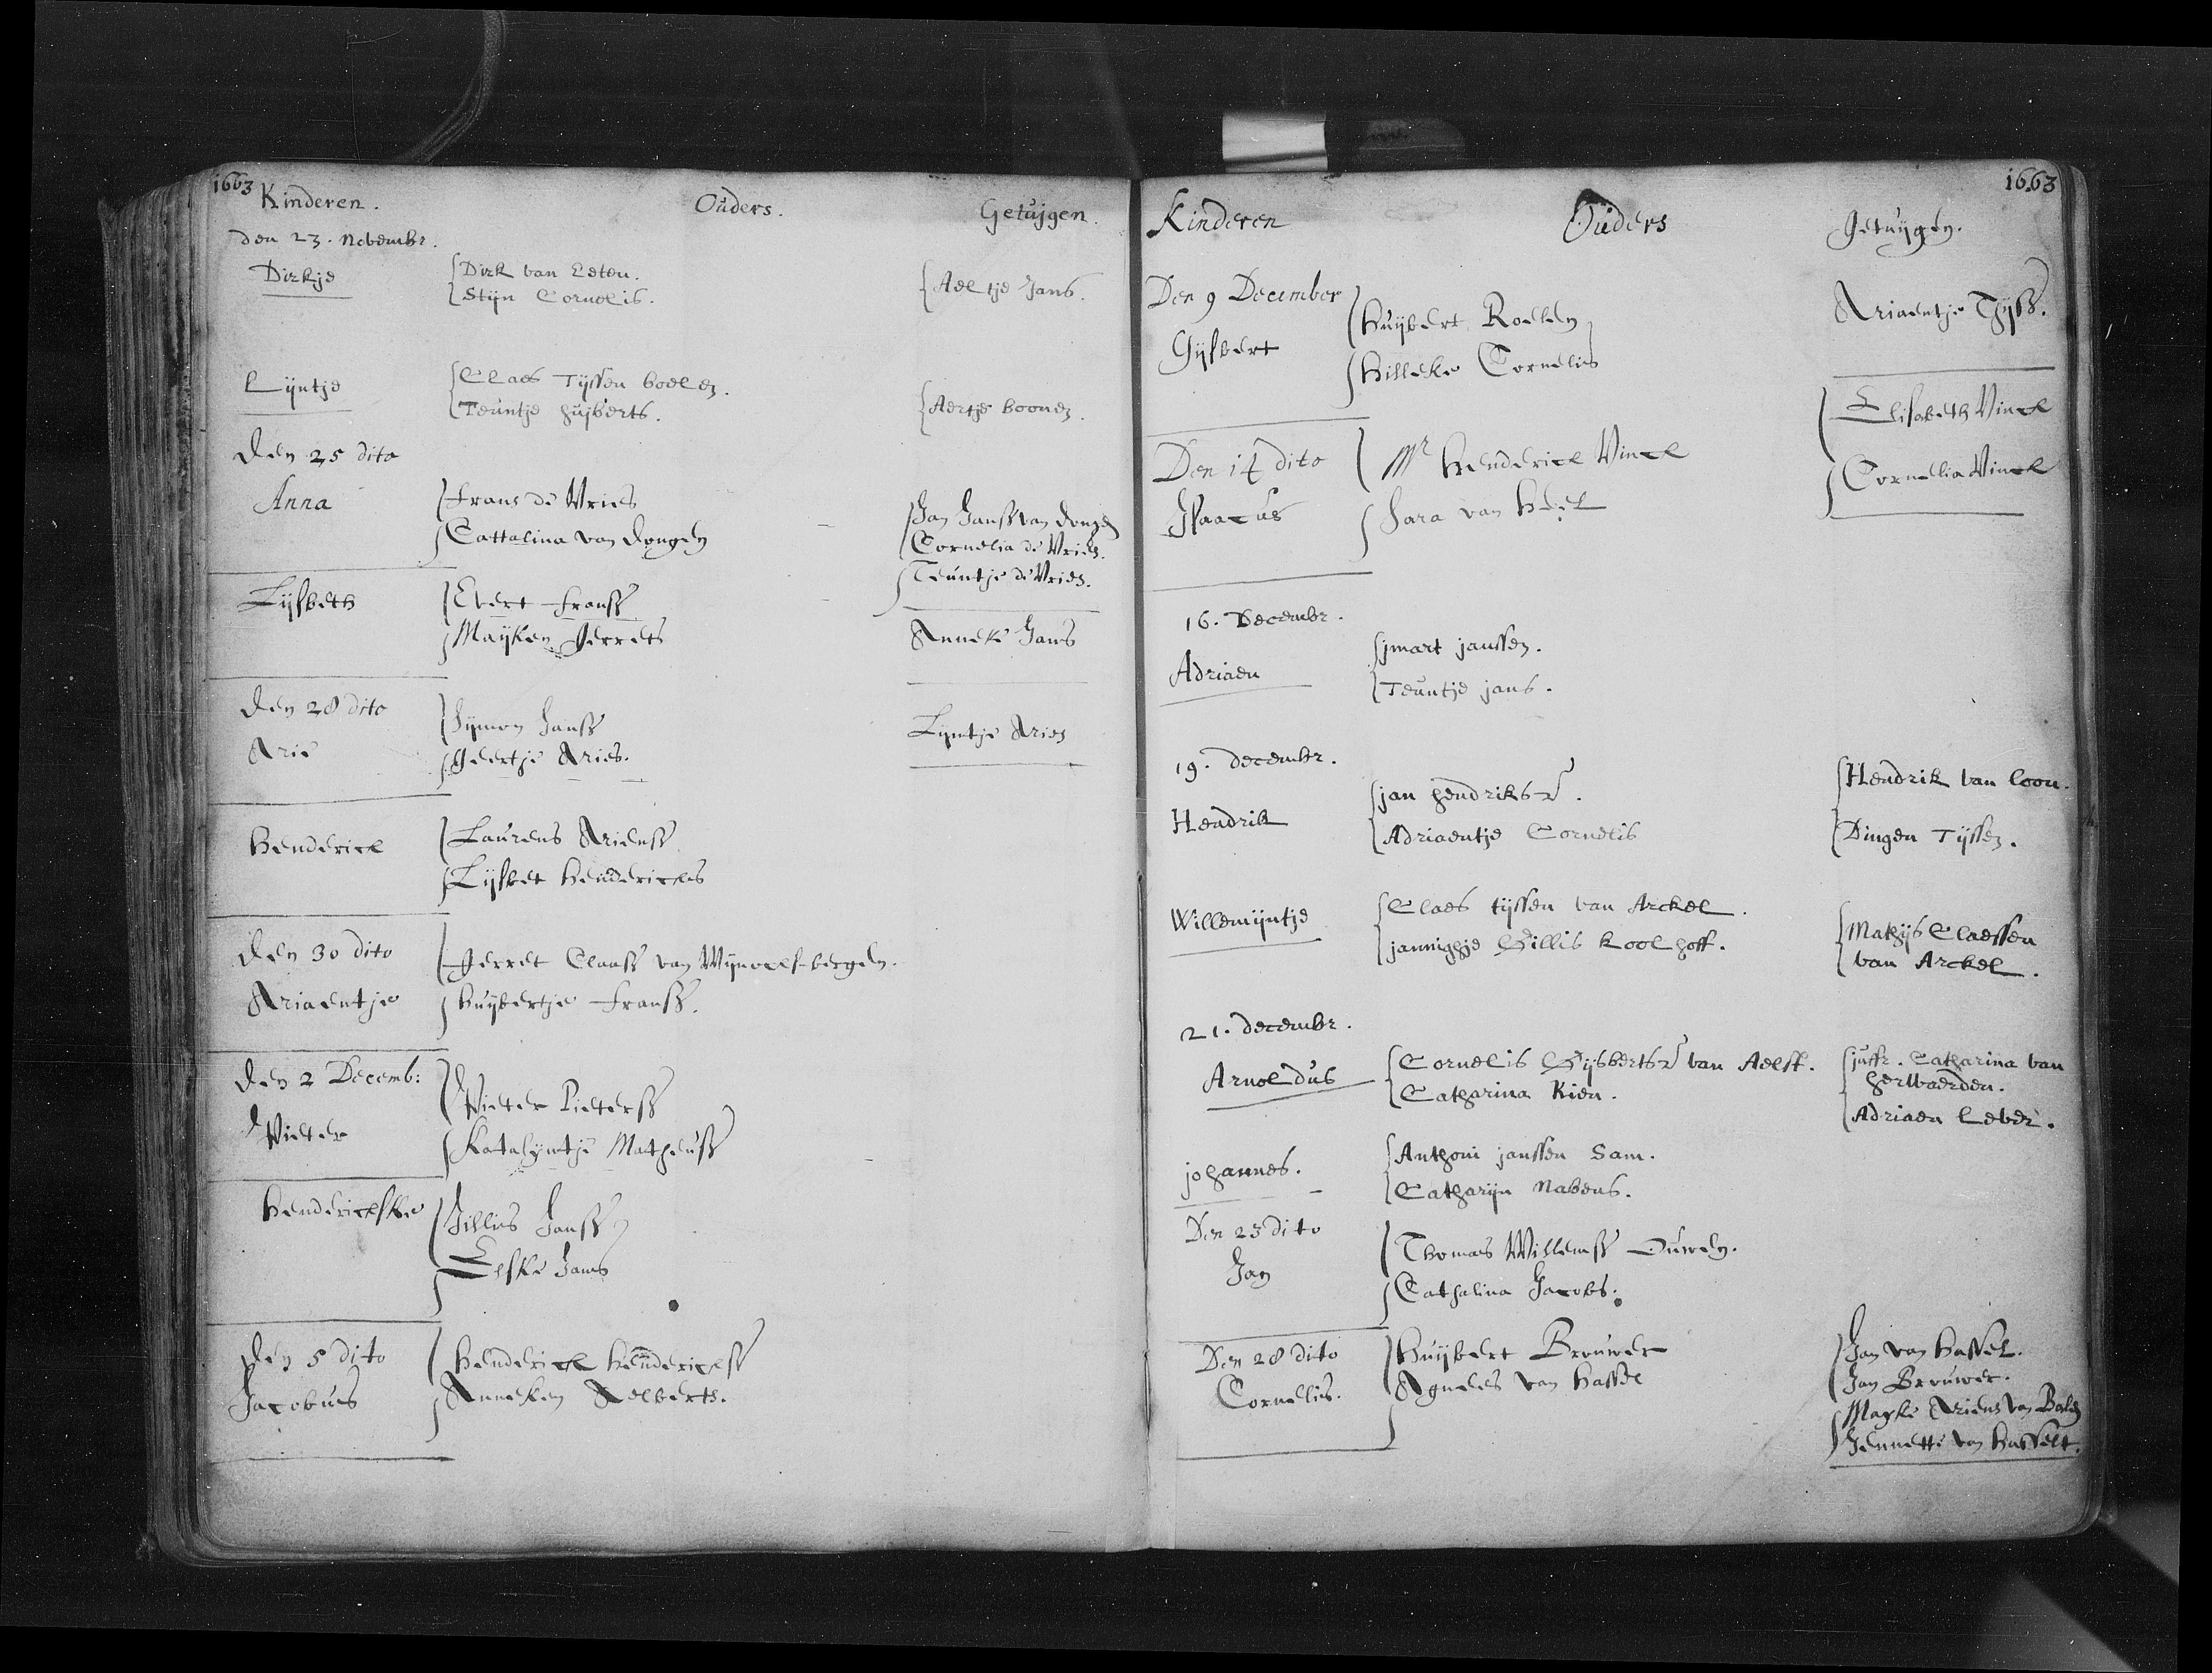 1663
Kinderen.
Ouders.
Getuijgen.
den 23. novembr.
Dirkje
Dirk van Eeten.
Stijn Cornelis.
Aeltje Jans.
Lijntje
Claes Tijssen boelen.
Teuntje huijberts.
Aertje boonen.
Den 25 dito
Anna
Frans de Vries
Cattalina van dongen
Jan Janss van dongen
Cornelia de Vries.
Teuntje de Vries.
Lijsbeth
Evert Franss
Maijken Gerrets
Anneke Jans
Den 28 dito
Arie
Sijmon Janss
Geertje Aries.
Lijntje Aries
Henderick
Laurens Arienss
Lijsbet Hendericks
Den 30 dito
Ariaentje
Gerret Claass van Wijnoelsbergen.
Huijbertje Franss.
Den 2 Decemb:
Pieter
Pieter Pieterss
Katalijntje Matheuss
Hendericske
Jillis Janss
Elske Jans
Den 5 dito
Jacobus
Henderick Hendericks
Anneken Aelberts.
1663
Kinderen
Ouders
Getuijgen.
Den 9 December
Gijsbert
Huijbert Roelen
Hilleke Cornelis
Ariaentje Thijss.
Den 14 dito
Isaacus
Mr Henderick Vinck
Sara van Hiel
Elisabeth Vinck
Cornelia Vinck
16. Decembr.
Adriaen
jmart janssen.
Teuntje jans.
19. decembr.
Hendrik
jan hendriksz.
Adriaentje Cornelis
Hendrik van Loon.
Dingen Tijssen.
Willemijntje
Claes tijssen van Arckel.
jannighje Gillis Koolhoff.
Mathijs Claessen
van Arckel.
21. decembr.
Arnoldus
Cornelis Gijsbertsz van Aelst.
Catharina Kien.
juffr. Catharina van
herwaerden.
Adriaen Lever.
johannes.
Anthoni janssen Sam.
Catharijn Nabens.
Den 23 dito
Jan
Thomas Willemss Ouwen.
Cathalina Jacobs.
Den 28 dito
Cornelis.
Huijbert Brouwer
Agnees van Hassel
Jan van Hassel.
Jan Brouwer.
Mayke Ariens van Balen
Jennette van Hasselt.